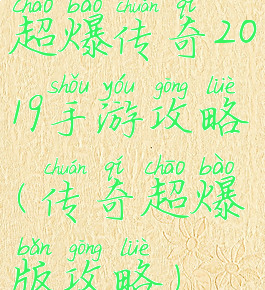 chāo bào chuán qí
超爆传奇20
shǒu yóu gōng lüè
19手游攻略
chuán qí chāo bào
(传奇超爆
bǎn gōng lüè
版攻略)